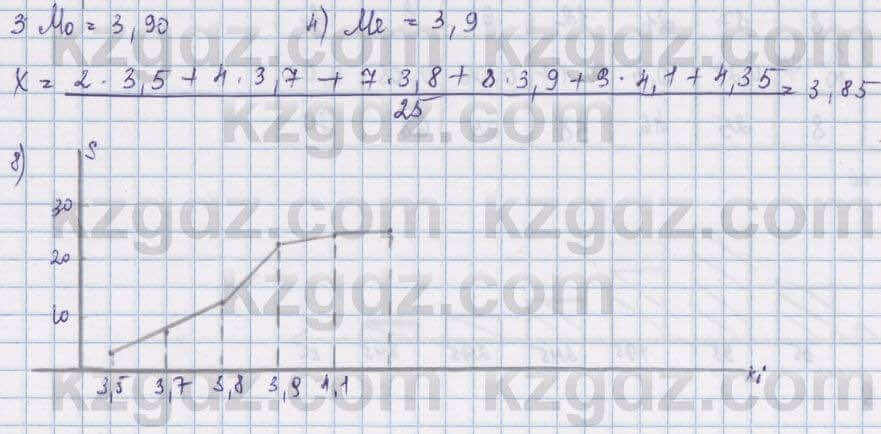 3 Mo = 3,90 4) Me = 3,9
X = 2 · 3,5 + 4 · 3,7 + 7 · 3,8 + 8 · 3,9 + 3 · 4,1 + 4,35 / 25 = 3,85
8)
S
30
20
10
3,5 3,7 3,8 3,9 4,1 xi
kzgdz.com kzgdz.com
kzgdz.com
kzgdz.com kzgdz.com
kzgdz.com
kzgdz.com kzgdz.com